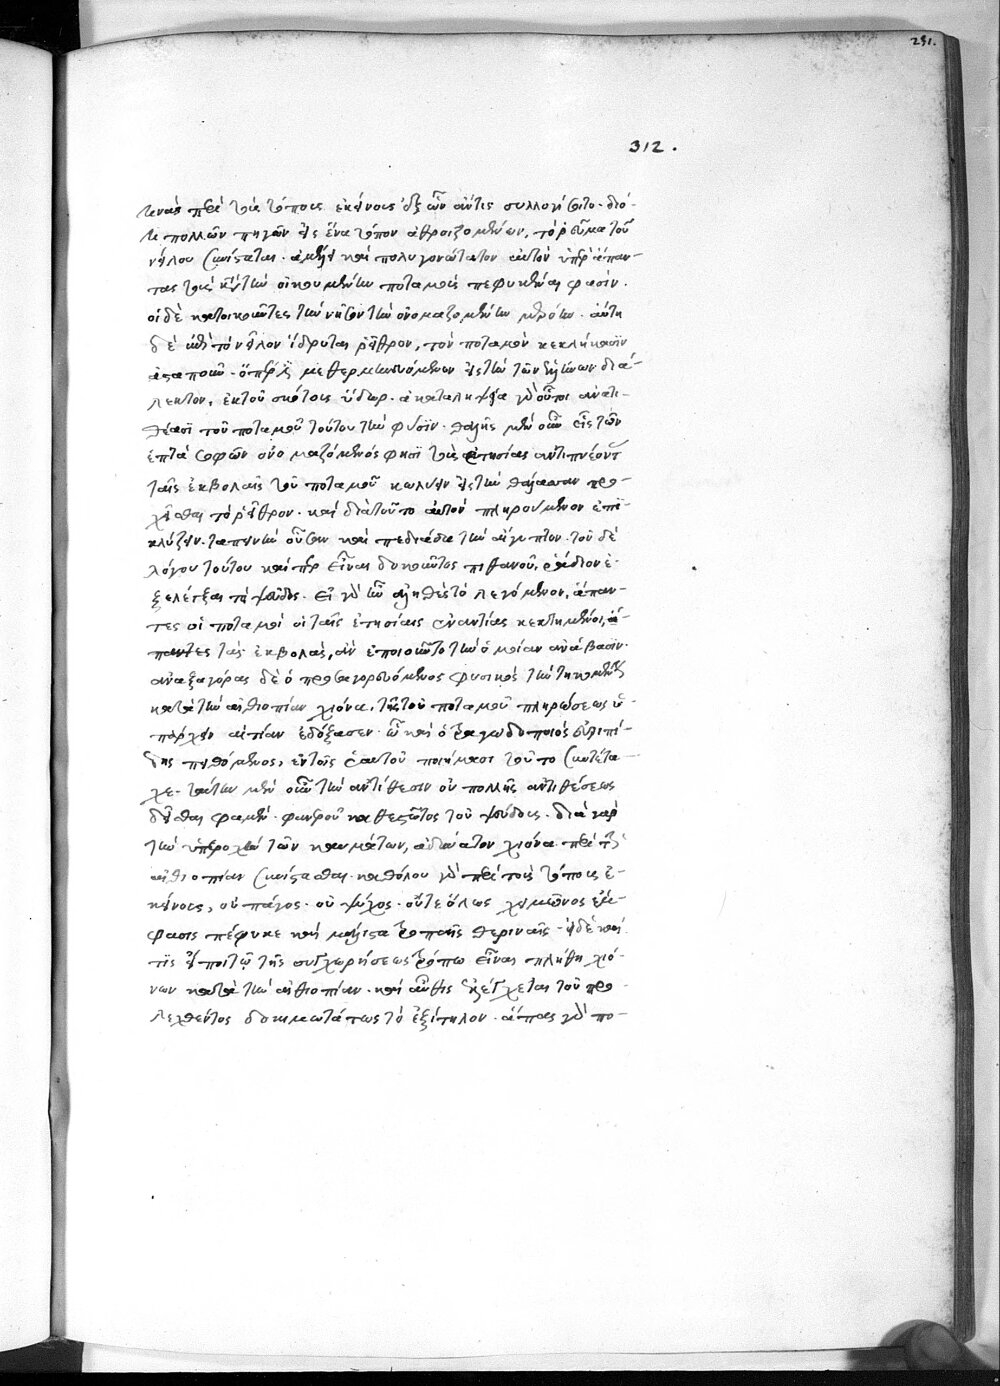 231.
312.
τινὰς περὶ τοὺς τόπους ἐκείνους ἐξ ὧν ἄν τις συλλογίσοιτο. διό-
τι πολλῶν πηγῶν εἰς ἕνα τόπον ἀθροιζομένων, τὸ ῥεῦμα τοῦ
νείλου συνίσταται. ἀμέλει καὶ πολυγονώτατον αὐτὸν ὑπὲρ ἅπαν-
τας τοὺς κατὰ τὴν οἰκουμένην ποταμοὺς πεφυκέναι φασίν.
οἱ δὲ κατοικοῦντες τὴν νῆσον τὴν ὀνομαζομένην μερόην. αὕτη
δὲ κατὰ τὸ νεῖλον ἵδρυται ῥεῖθρον, τὸν ποταμὸν κεκλήκασιν
ἀσταποῦν. ὅπερ ἐστὶ μεθερμηνευόμενον εἰς τὴν τῶν ἑλλήνων διά-
λεκτον, ἐκ τοῦ σκότους ὕδωρ. ἀκαταληψία γὰρ οὗτοι ἀνατι-
θέασι τοῦ ποταμοῦ τούτου τὴν φύσιν. θαλῆς μὲν οὖν εἷς τῶν
ἑπτὰ σοφῶν ὀνομαζόμενός φησι τοὺς ἐτησίας ἀντιπνέοντας
ταῖς ἐκβολαῖς τοῦ ποταμοῦ κωλύειν εἰς τὴν θάλασσαν προ-
χεῖσθαι τὸ ῥεῖθρον. καὶ διὰ τοῦτο αὐτὸν πληρούμενον ἐπι-
κλύζειν. ταπεινὴν οὖσαν καὶ πεδιάδα τὴν αἴγυπτον. τοῦ δὲ
λόγου τούτου καίπερ εἶναι δοκοῦντος πιθανοῦ, ῥᾴδιον ἐ-
ξελέγξαι τὸ ψεῦδος. εἰ γὰρ ἦν ἀληθὲς τὸ λεγόμενον, ἅπαν-
τες οἱ ποταμοὶ οἱ ταῖς ἐτησίαις ἐναντίας κεκτημένοι, ἁ-
παντες τὰς ἐκβολὰς, ἂν ἐποιοῦντο τὴν ὁμοίαν ἀνάβασιν.
ἀναξαγόρας δὲ ὁ προσαγορευόμενος φυσικὸς τὴν τηκομένην
κατὰ τὴν αἰθιοπίαν χιόνα, τῆς τοῦ ποταμοῦ πληρώσεως ὑ-
πάρχειν αἰτίαν ἐδόξασεν. ᾧ καὶ ὁ τραγῳδοποιὸς εὐριπί-
δης πειθόμενος, ἐν τοῖς ἑαυτοῦ ποιήμασι τοῦτο συντέτα-
χε. ταύτην μὲν οὖν τὴν ἀντίθεσιν οὐ πολλῆς ἀντιθέσεως
δεῖσθαι φαμὲν. φανεροῦ καθεστῶτος τοῦ ψεύδους. διὰ γὰρ
τὴν ὑπεροχὴν τῶν καυμάτων, ἀδύνατον χιόνα περὶ τὴν
αἰθιοπίαν συνίστασθαι. καθόλου γὰρ περὶ τοὺς τόπους ἐ-
κείνους, οὐ πάγος. οὐ ψῦχος. οὔτε ὅλως χειμῶνος ἔμ-
φασις πέφυκε καὶ μάλιστα τροπαῖς θεριναῖς. εἰ δὲ καί
τις εἴποι τῷ τῆς συγχωρήσεως τρόπῳ εἶναι πλήθη χιό-
νων κατὰ τὴν αἰθιοπίαν. καὶ αὖθις ἐλέγχεται τοῦ προ-
λεχθέντος δοκιμωτάτως τὸ ἐξίτηλον. ἅπας γὰρ πο-